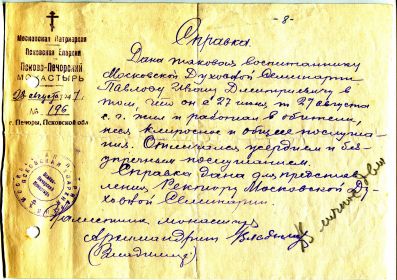 Московская Патриархия
Псковская Епархия
Псково-Печорский
МОНАСТЫРЬ
28 августа 1947
№ 196
г. Печоры, Псковской обл
- 8 -
Справка.
Дана таковая воспитаннику
Московской Духовной Семинарии
Павлову Ивану Димитриевичу в
том, что он с 27 июня по 27 августа
с. г. жил и работал в обители,
неся клиросное и общее послуша-
ния. Отличался усердием и без-
упречным послушанием.
Справка дана для представ-
ления Ректору Московской Ду-
ховной Семинарии.
Наместник монастыря
Архимандрит Владимир
(Владимир)
К личному делу